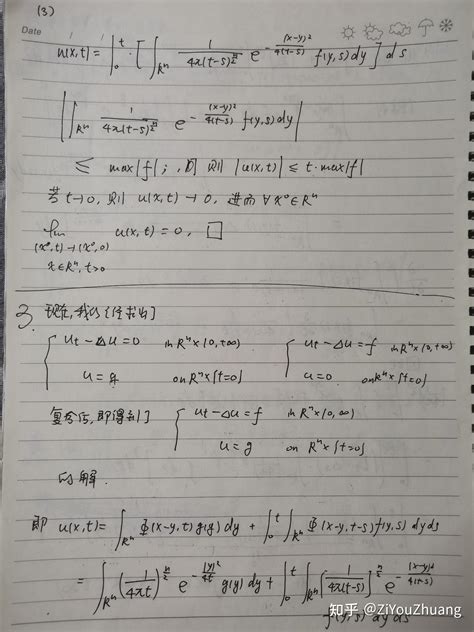 (3)
Date / /
u(x,t) = ∫₀ᵗ · [ ∫_{Rⁿ} 1/(4π(t-s)^{n/2}) e^{-(x-y)²/4(t-s)} f(y,s) dy ] ds
| ∫_{Rⁿ} 1/(4π(t-s)^{n/2}) e^{-(x-y)²/4(t-s)} f(y,s) dy |
≤ max|f| ; 则 |u(x,t)| ≤ t·max|f|
若 t→0, 则 u(x,t) → 0, 进而 ∀ x⁰∈Rⁿ
lim u(x,t) = 0, □
(x⁰,t)→(x⁰,0)
x∈Rⁿ, t>0
3. 现在, 我们 求出了
{ u_t − Δu = 0 in Rⁿ×(0,+∞) { u_t − Δu = f in Rⁿ×(0,+∞)
u = g on Rⁿ×{t=0} u = 0 on Rⁿ×{t=0}
即得到了 { u_t − Δu = f in Rⁿ×(0,∞)
u = g on Rⁿ×{t=0}
的解.
即 u(x,t) = ∫_{Rⁿ} Φ(x-y,t) g(y) dy + ∫₀ᵗ ∫_{Rⁿ} Φ(x-y,t-s) f(y,s) dy ds
= ∫_{Rⁿ} (1/4πt)^{n/2} e^{-|y|²/4t} g(y) dy + ∫₀ᵗ ∫_{Rⁿ} [1/4π(t-s)]^{n/2} e^{-(x-y)²/4(t-s)}
f(y,s) dy ds
知乎 @ZiYouZhuang